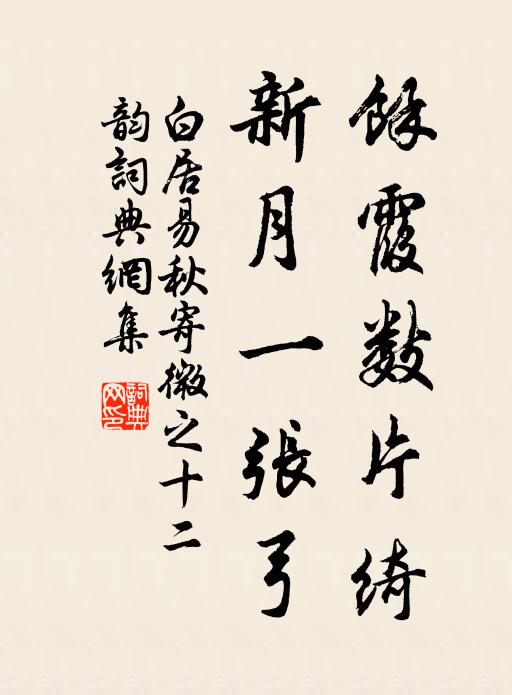 餘霞數片綺
新月一張弓
白居易秋寄微之十二
韵詞典網集
詞典
网印